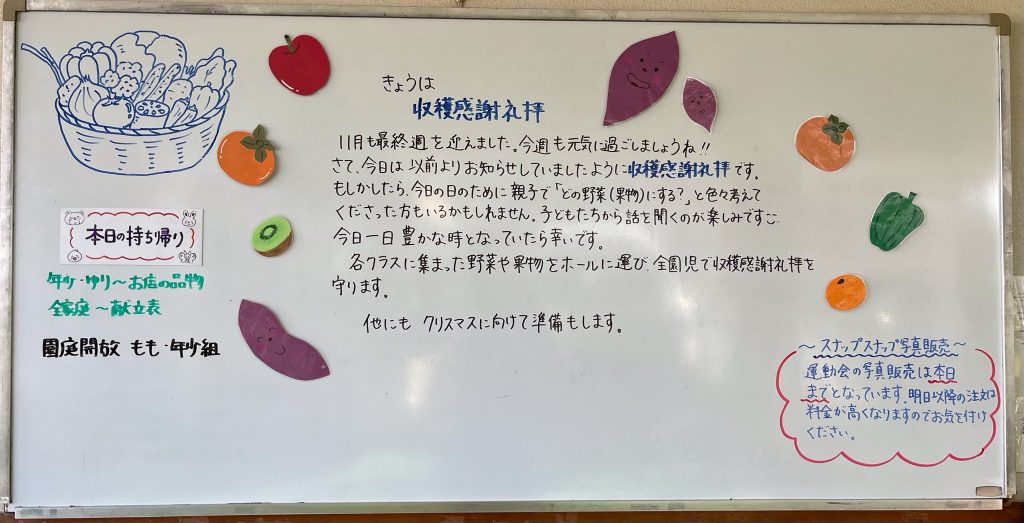 きょうは
収穫感謝礼拝
11月も最終週を迎えました。今週も元気に過ごしましょうね!!
さて、今日は以前よりお知らせしていましたように収穫感謝礼拝です。
もしかしたら、今日の日のために親子で「どの野菜(果物)にする?」と色々考えて
くださった方もいるかもしれません。子どもたちから話を聞くのが楽しみです
今日一日豊かな時となっていたら幸いです。
各クラスに集まった野菜や果物をホールに運び、全園児で収穫感謝礼拝を
守ります。
他にも クリスマスに向けて準備もします。
本日の持ち帰り
年少・ゆり〜お店の品物
全家庭〜献立表
園庭開放 もも・年少組
〜スナップスナップ写真販売〜
運動会の写真販売は本日
までとなっています。明日以降の注文は
料金が高くなりますのでお気を付け
ください。